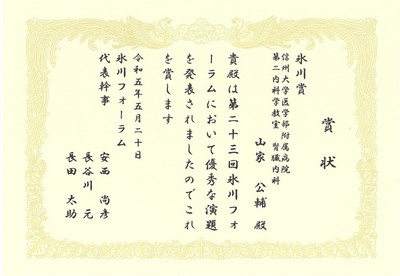 賞状
氷川賞
信州大学医学部附属病院
第二内科学教室 腎臓内科
山家 公輔 殿
貴殿は第二十三回氷川フォ
ーラムにおいて優秀な演題
を発表されましたのでこれ
を賞します
令和五年五月二十日
氷川フォーラム
代表幹事
安西 尚彦
長谷川 元
長田 太助